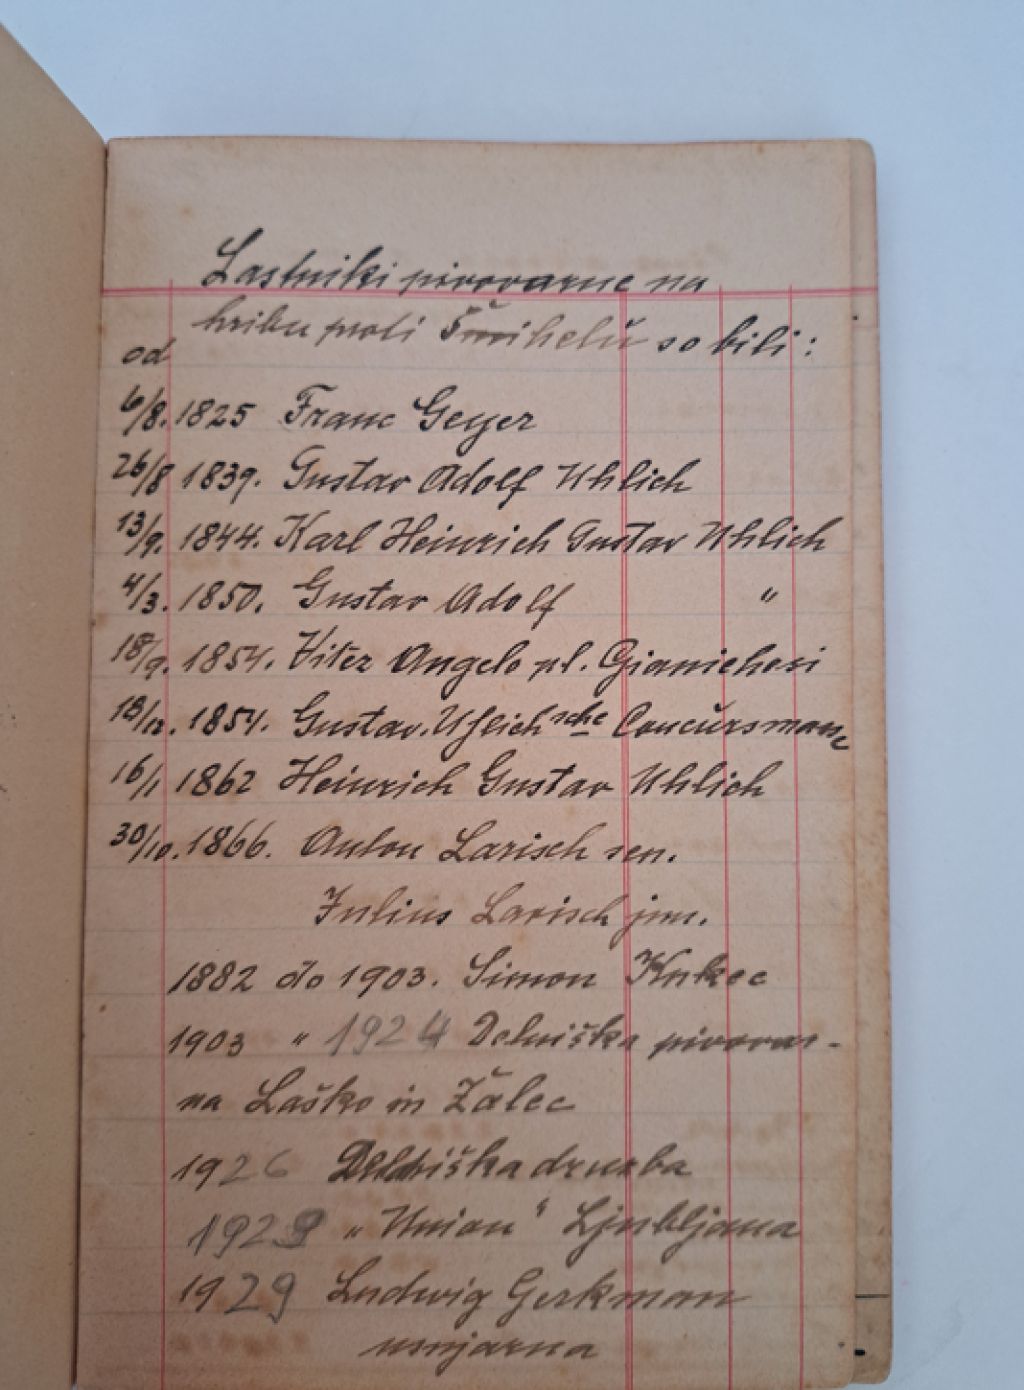 Lastniki pivovarne na
hribu proti Šmihelŭ so bili:
od
6/8. 1825 Franc Geyer
26/8 1839. Gustav Adolf Uhlich
13/9. 1844. Karl Heinrich Gustav Uhlich
4/3. 1850. Gustav Adolf "
18/9. 1854. Vitez Angelo pl. Gianichesi
18/12. 1854. Gustav. Uhlich sche Concŭrsmasse
16/1 1862 Heinrich Gustav Uhlich
30/10. 1866. Anton Larisch sen.
Julius Larisch jun.
1882 do 1903. Simon Kukec
1903 " 1924 Delniška pivovar-
na Laško in Žalec
1926 Delniška družba
1928 "Union" Ljubljana
1929 Ludwig Gerkman
usnjarna